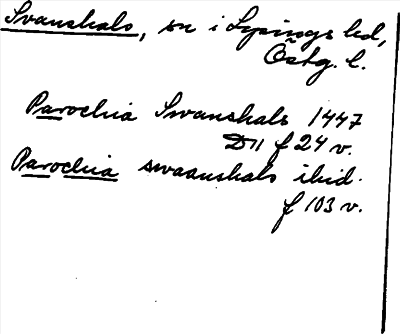 Svanshals, sn i Lysings hd,
Östg. l.
Parochia Swanshals 1447
D11 f 24 v.
Parochia swaanshals ibid.
f 103 v.